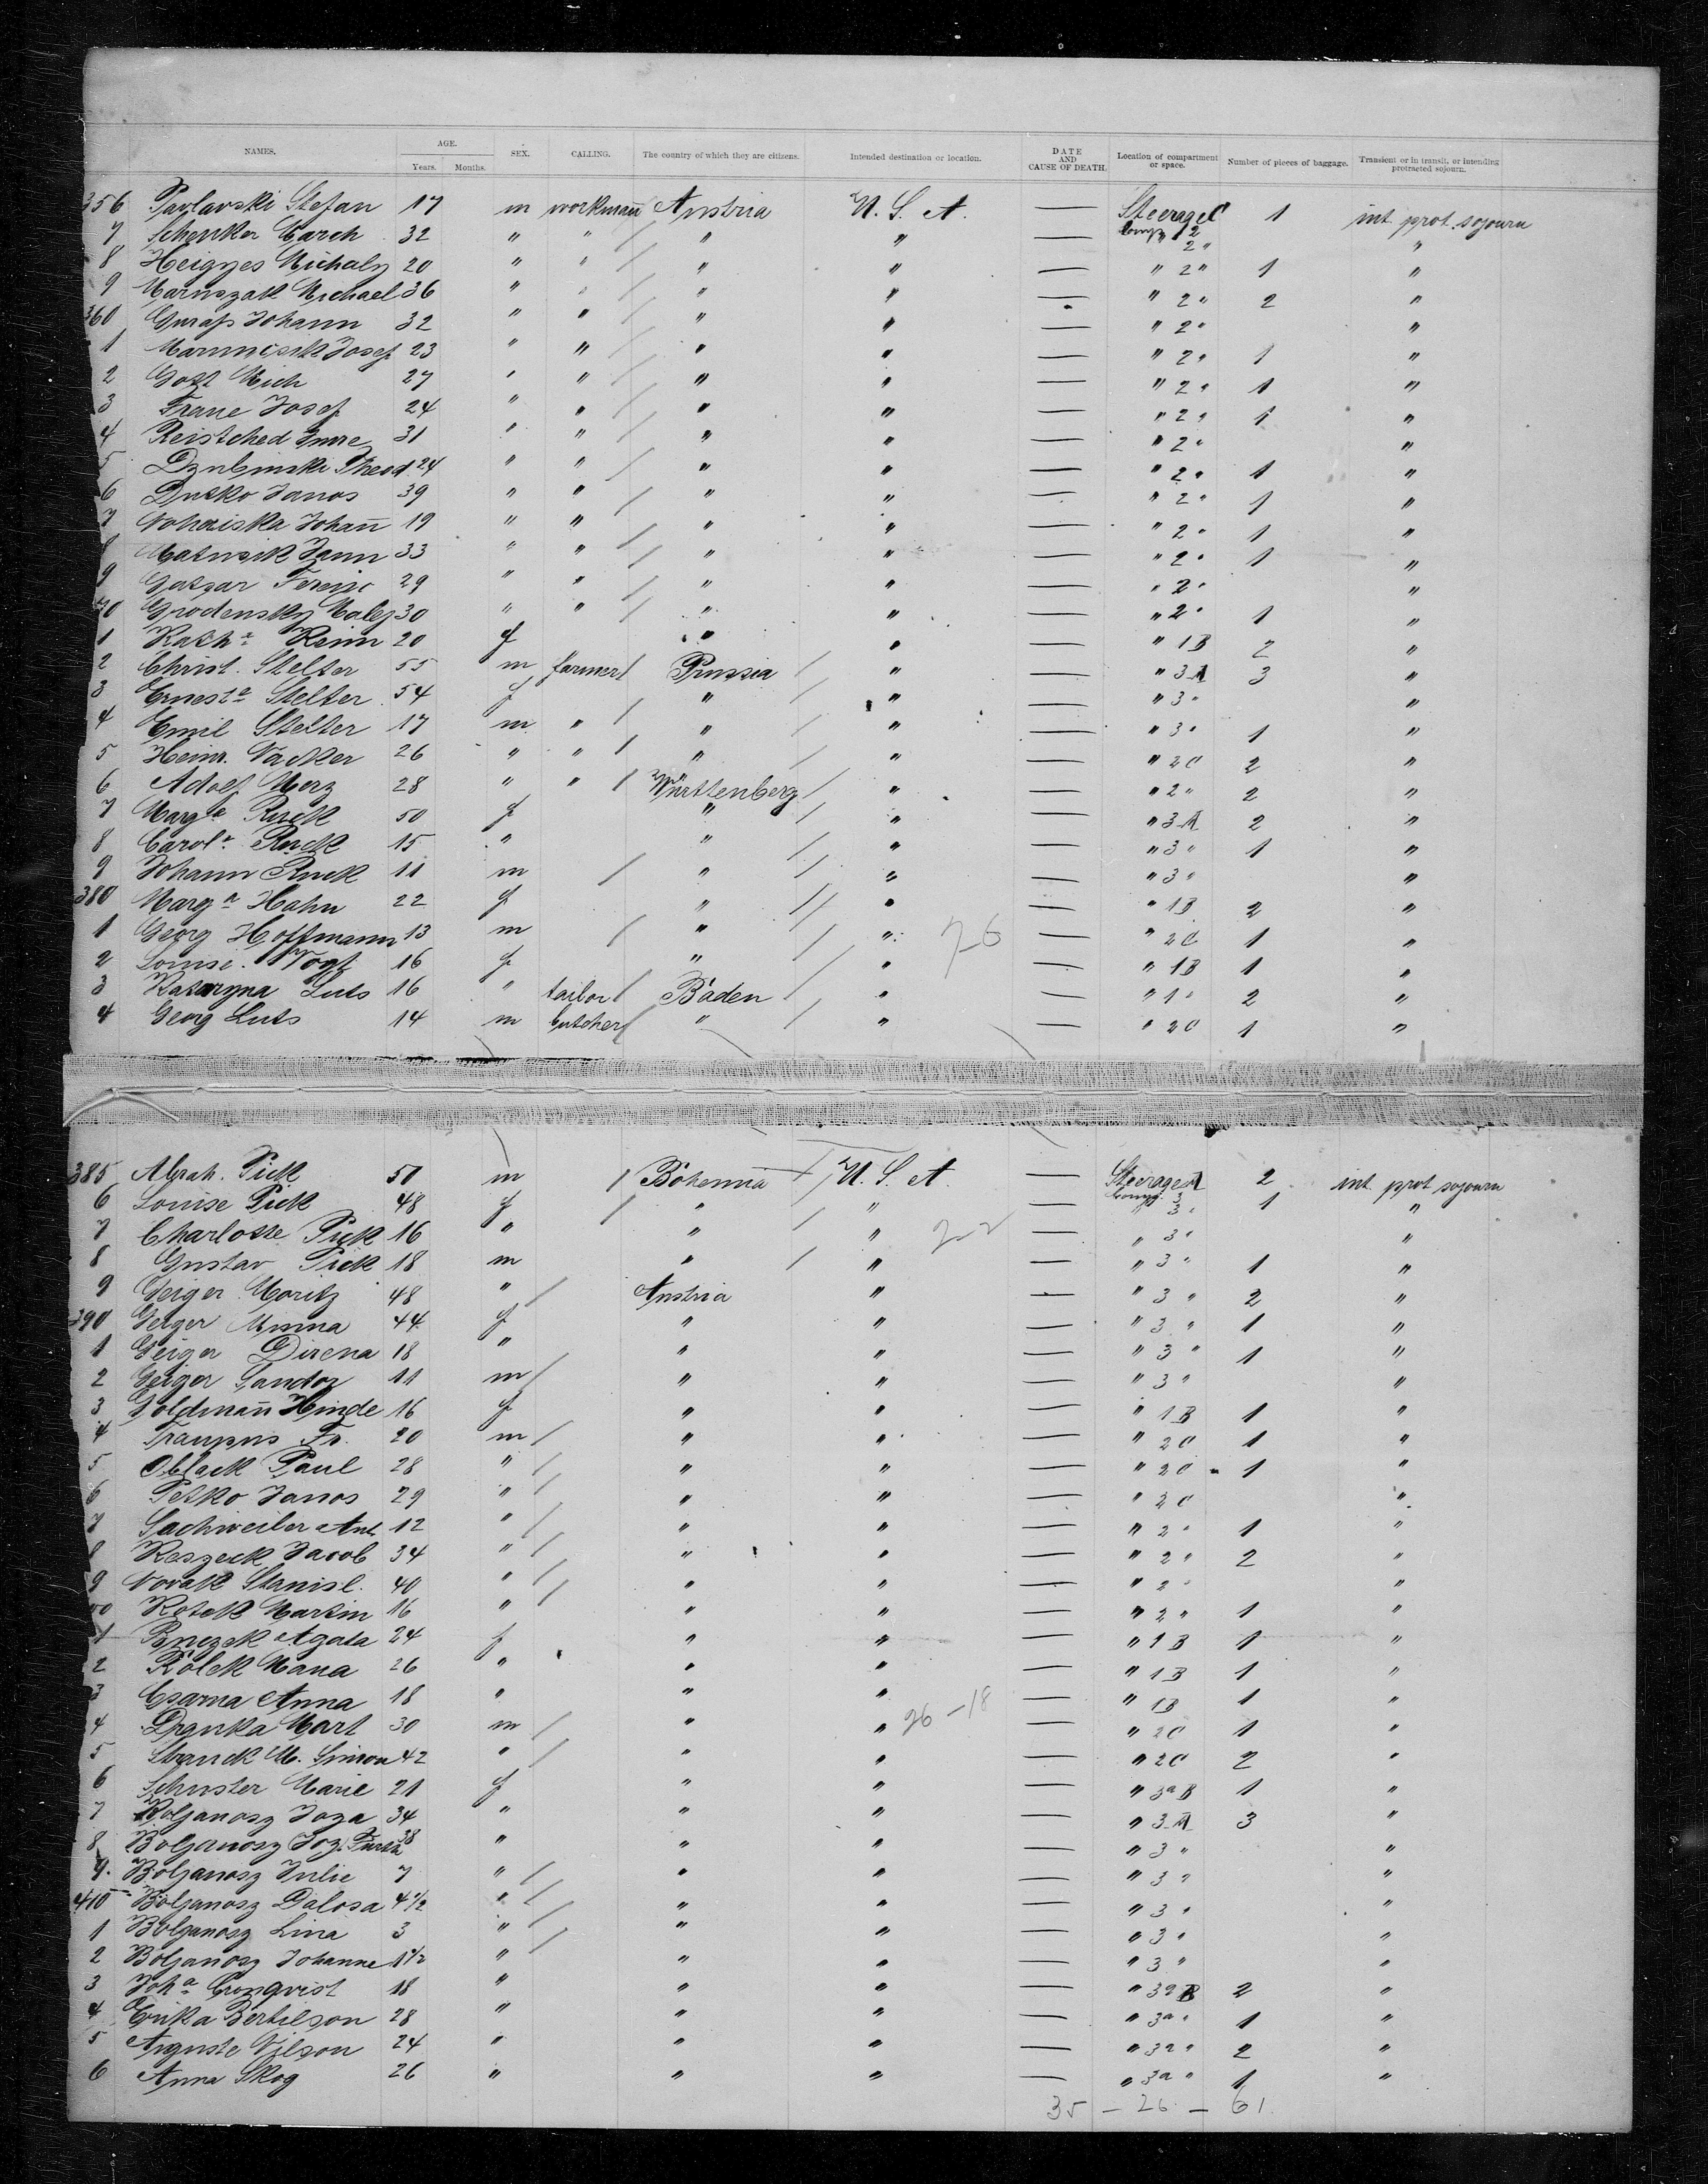 NAMES. AGE. Years. Months. SEX. CALLING. The country of which they are citizens. Intended destination or location. DATE AND CAUSE OF DEATH. Location of compartment or space. Number of pieces of baggage. Transient or in transit, or intending protracted sojourn.
356 Pavlavski Stefan 17 m workmañ Austria U. S. A. — Steerage C comp. 2 1 int. prot. sojourn
7 Schenker 32 " " / " " — " 2 " "
8 Heigyes Michaly 20 " " / " " — " 2 " 1 "
9 Maruszak Michael 36 " " / " " — " 2 " 2 "
360 Johann 32 " " / " " — " 2 " "
1 Josef 23 " " / " " — " 2 " 1 "
2 Gost Mich 27 " " / " " — " 2 " 1 "
3 Frane Josef 24 " " / " " — " 2 " 1 "
4 Reistched Imre 31 " " / " " — " 2 " "
5 Dzubinski Theod. 24 " " / " " — " 2 " 1 "
6 Dutko Janos 39 " " / " " — " 2 " 1 "
7 Johañ 19 " " / " " — " 2 " 1 "
8 Matusik Jann 33 " " / " " — " 2 " 1 "
9 Gaszar Ferenc 29 " " / " " — " 2 " "
70 Grodensky 30 " " / " " — " 2 " 1 "
1 Kath.a Reim 20 f " " — " 1 B 2 "
2 Christ. Stelter 55 m farmer / Prussia / " — " 3 A 3 "
3 Ernest.a Stelter 54 f / " / " — " 3 " "
4 Emil Stelter 17 m " / " / " — " 3 " 1 "
5 Heinr. Vacker 26 " " / " / " — " 2 C 2 "
6 Adolf Merz 28 " " / Württenberg / " — " 2 " 2 "
7 Marg.te Ruck 50 f " / " — " 3 A 2 "
8 Carol.e Ruck 15 " " / " — " 3 " 1 "
9 Johann Ruck 11 m / " / " — " 3 " "
380 Marg.a Hahn 22 f " / / " — " 1 B 2 "
1 Georg Hoffmann 13 m / " / " 76 — " 2 C 1 "
2 Louise. Vogt 16 f " / " — " 1 B 1 "
3 Kataryna Luts 16 " tailor / Baden / " — " 1 " 2 "
4 Georg Luts 14 m butcher / " / " — " 2 C 1 "
385 Abrah. Pick 50 m / Bohemia / U. S. A. — Steerage A comp. 3 2 int. prot sojourn
6 Louise Pick 48 f / " / " — " 3 " 1 "
7 Charlotte Pick 16 " " / " 22 — " 3 " "
8 Gustav Pick 18 m " / " — " 3 " 1 "
9 Geiger Moritz 48 " / Austria " — " 3 " 2 "
390 Geiger Minna 44 f " " — " 3 " 1 "
1 Geiger Direna 18 " " " — " 3 " 1 "
2 Geiger Sandor 11 m / " " — " 3 " "
3 Goldmañ Hinde 16 f " " — " 1 B 1 "
4 Fr. 20 m / " " — " 2 C 1 "
5 Oblack Paul 28 " / " " — " 2 C 1 "
6 Petko Janos 29 " / " " — " 2 C "
7 Sachweiler Ant 12 " / " " — " 2 " 1 "
8 Keszeck Jacob 34 " / " " — " 2 " 2 "
9 Novak Stanisl. 40 " / " " — " 2 " "
00 Kotak Martin 16 " / " " — " 2 " 1 "
1 Agata 24 f " " — " 1 B 1 "
2 Rolek Mana 26 " " " — " 1 B 1 "
3 Czarna Anna 18 " " " — " 1 B 1 "
4 Mart 30 m / " " 26 - 18 — " 2 C 1 "
5 M. Simon 42 " / " " — " 2 C 2 "
6 Schuster Marie 21 f " " — " 3a B 1 "
7 Bolganosz Joza 34 " " " — " 3 A 3 "
8 Bolganosz Joz. 38 " " " — " 3 " "
9. Bolganosz Julie 7 " / " " — " 3 " "
410 Bolganosz Dalosa 4 1/2 " / " " — " 3 " "
1 Bolganosz Lina 3 " / " " — " 3 " "
2 Bolganosz Johanne 1 1/2 " " " — " 3 " "
3 Joh.a Cronqvist 18 " " " — " 3a B 2 "
4 Erika Bertilson 28 " " " — " 3a " 1 "
5 Auguste Nilson 24 " " " — " 3a " 2 "
6 Anna Skog 26 " " " — " 3a " 1 "
35 — 26 — 61